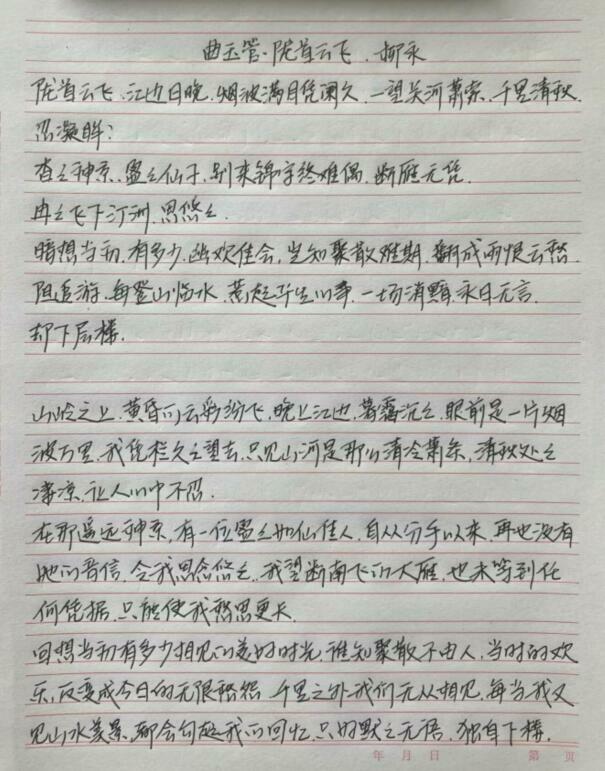 曲玉管·陇首云飞.柳永
陇首云飞.江边日晚.烟波满目凭阑久.一望关河萧索.千里清秋.
忍凝眸?
杳々神京.盈々仙子.别来锦字终难偶.断雁无凭.
冉々飞下汀洲.思悠々.
暗想当初.有多少.幽欢佳会.岂知聚散难期.翻成雨恨云愁.
阻追游.每登山临水.惹起平生心事.一场消黯.永日无言.
却下层楼.
山岭之上.黄昏的云彩纷飞.晚上江边.暮霭沉々.眼前是一片烟
波万里.我凭栏久々望去.只见山河是那么清冷萧条.清秋处々
凄凉.让人心中不忍.
在那遥远神京.有一位盈々如仙佳人.自从分手以来.再也没有
她的音信.令我思念悠々.我望断南飞的大雁.也未等到任
何凭据.只能使我愁思更长.
回想当初有多少相见的美好时光.谁知聚散不由人.当时的欢
乐.反变成今日的无限愁怨.千里之外我们无从相见.每当我又
见山水美景.都会勾起我的回忆.只好默々无语.独自下楼.
年 月 日
第 页